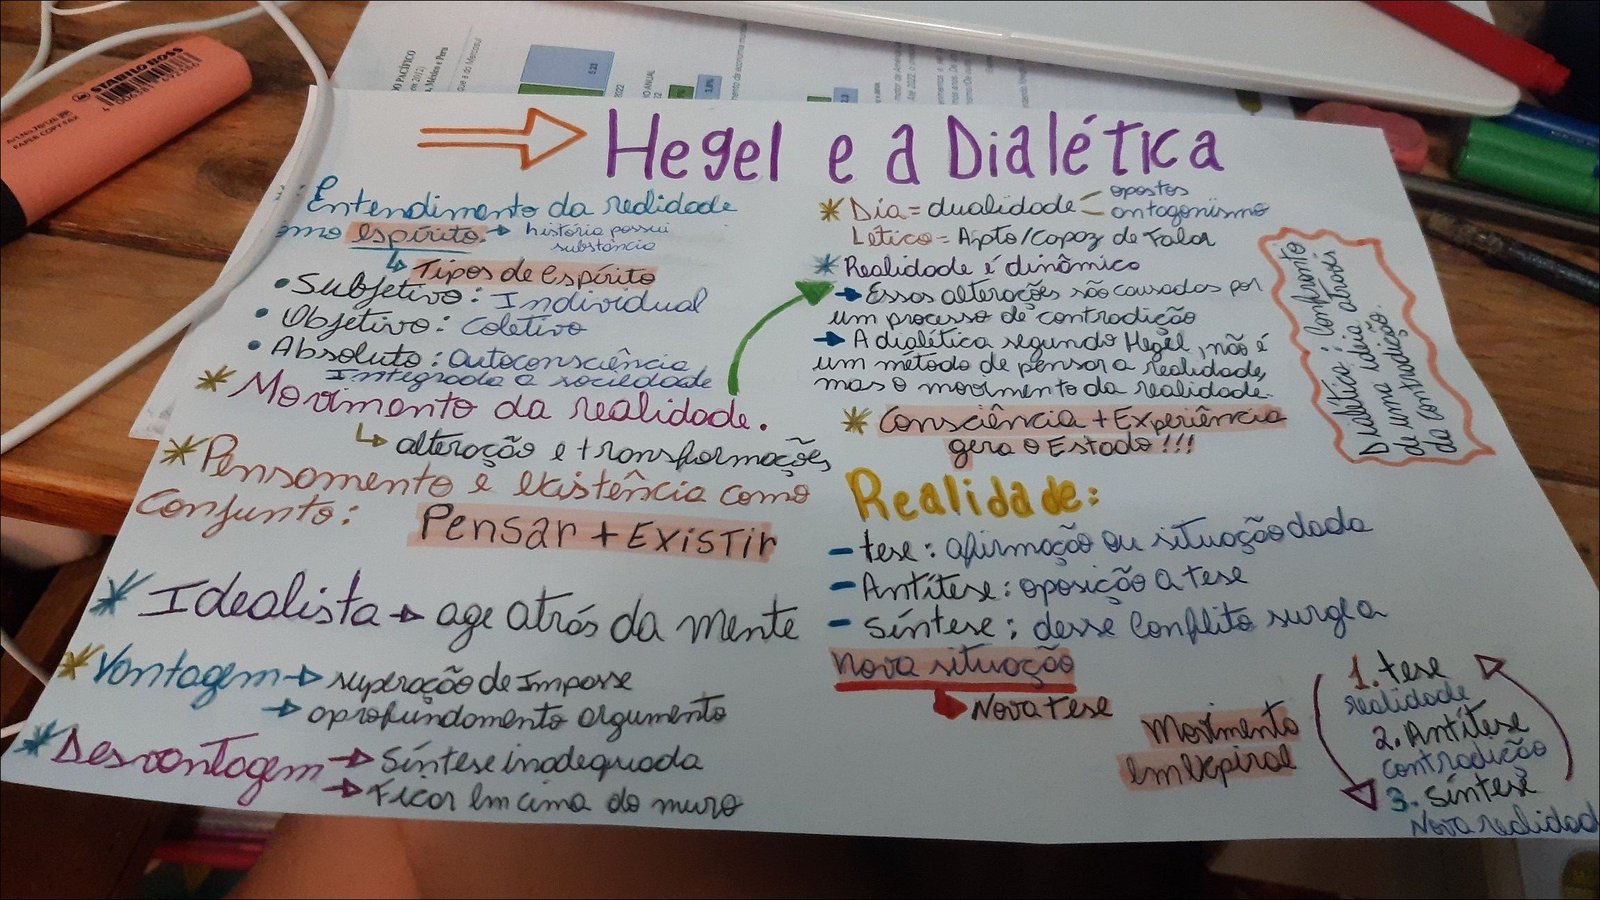 STABILO BOSS
PAPER COPY FAX
PACÍFICO
2012)
México e Peru
que a do Mercosul
2022
O ANUAL
Hegel e a Dialética
Entendimento da realidade
omo espírito. história possui
substância
Tipos de espírito
• Subjetivo: Individual
• Objetivo: coletivo
• Absoluto: autoconsciência
Integrada a sociedade
Movimento da realidade.
alteração e transformações
Pensamento e existência como
Conjunto: Pensar + Existir
Idealista → age atrás da mente
Vantagem → superação de Impasse
→ aprofundamento argumento
Desvantagem → Síntese inadequada
→ Ficar em cima do muro
Dia = dualidade opostos
antagonismo
Lético = Apto/capaz de Falar
Realidade é dinâmica
→ Essas alterações são causadas por
um processo de contradição
→ A dialética segundo Hegel, não é
um método de pensar a realidade,
mas o movimento da realidade.
Consciência + Experiência
gera o Estado!!!
Dialética: Confronto
de uma ideia através
da contradição.
Realidade:
- tese: afirmação ou situação dada
- Antítese: oposição a tese
- Síntese: desse conflito surge a
nova situação
Nova tese
Movimento
em espiral
1. tese
realidade
2. Antítese
contradição
3. Síntese
Nova realidad